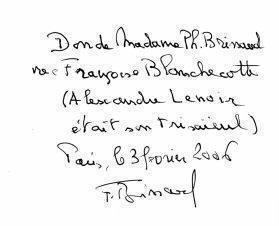 Don de Madame Ph. Brissaud
née Françoise Blanchecotte
(Alexandre Lenoir
était son trisaïeul)
Paris, le 3 février 2006
F. Brissaud